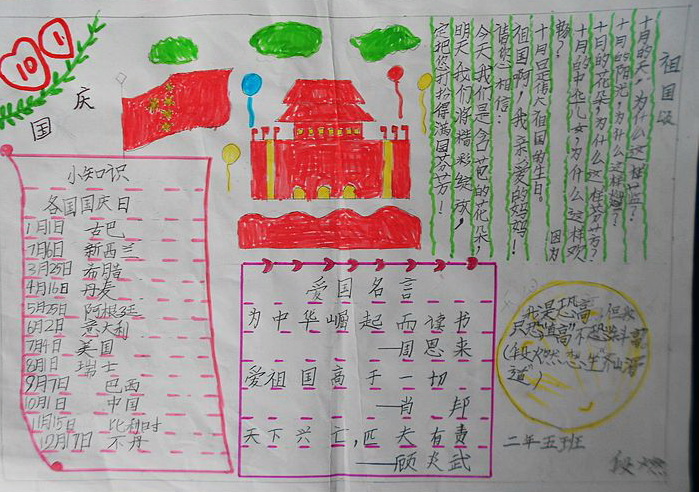 10 1
国庆
小知识
各国国庆日
1月1日 古巴
7月6日 新西兰
3月25日 希腊
4月16日 丹麦
5月25日 阿根廷
6月2日 意大利
7月4日 美国
8月1日 瑞士
9月7日 巴西
10月1日 中国
11月15日 比利时
12月17日 不丹
爱国名言
为中华崛起而读书
——周恩来
爱祖国高于一切
——肖邦
天下兴亡,匹夫有责
——顾炎武
祖国颂
十月的天,为什么这样蓝?
十月的阳光,为什么这样
十月的花朵,为什么这样芬芳?
十月的中华儿女,为什么这样欢
畅? 因为
十月日是伟大祖国的生日。
祖国啊,我亲爱的妈妈!
请您相信:
今天我们是含苞的花朵,
明天,我们将精彩绽放,
定把您打扮得满园芬芳!
我是恐高,但
二年五班